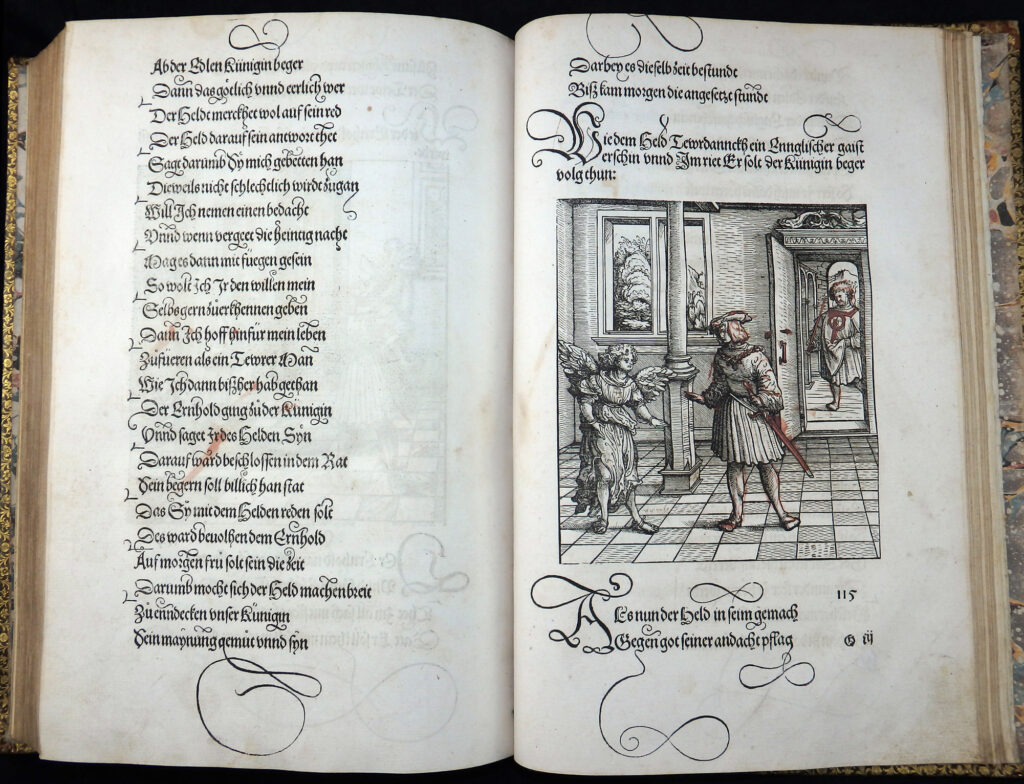 Ab der Edlen Künigin beger
Dann das götlich vnnd eerlich wer
Der Helde merckhet wol auf sein red
Der Held darauf sein antwort thet
Sagt darumb Sy mich gebetten han
Dieweils nicht schlechtlich wirdt zugan
Will Ich nemen einen bedacht
Vnnd wenn vergeet die heintig nacht
Mag es dann mit füegen gesein
So wolt Ich Ir den willen mein
Selbs gern zuerkhennen geben
Dann Ich hoff hinfür mein leben
Zufüeren als ein Tewrer Man
Wie Ich dann bißher hab gethan
Der Ernhold ging zu der Künigin
Vnnd saget Ir des Helden Syn
Darauf ward beschlossen in dem Rat
Sein begern soll billich han stat
Das Sy mit dem Helden reden solt
Des ward beuolhen dem Ernhold
Auf morgen fru solt sein die zeit
Darumb mocht sich der Held machen breit
Zu enndecken vnser Künigin
Sein maynung gemüt vnnd syn
Darbey es dieselb zeit bestundt
Biß kam morgen die angesetzt stundt
Wie dem Held Tewrdannckh ein Enngelischer gaist
erschin vnnd Im riet Er solt der Künigin beger
volg thun:
115
Als nun der Held in seim gemach
Gegen got seiner andacht pflag
Q iij